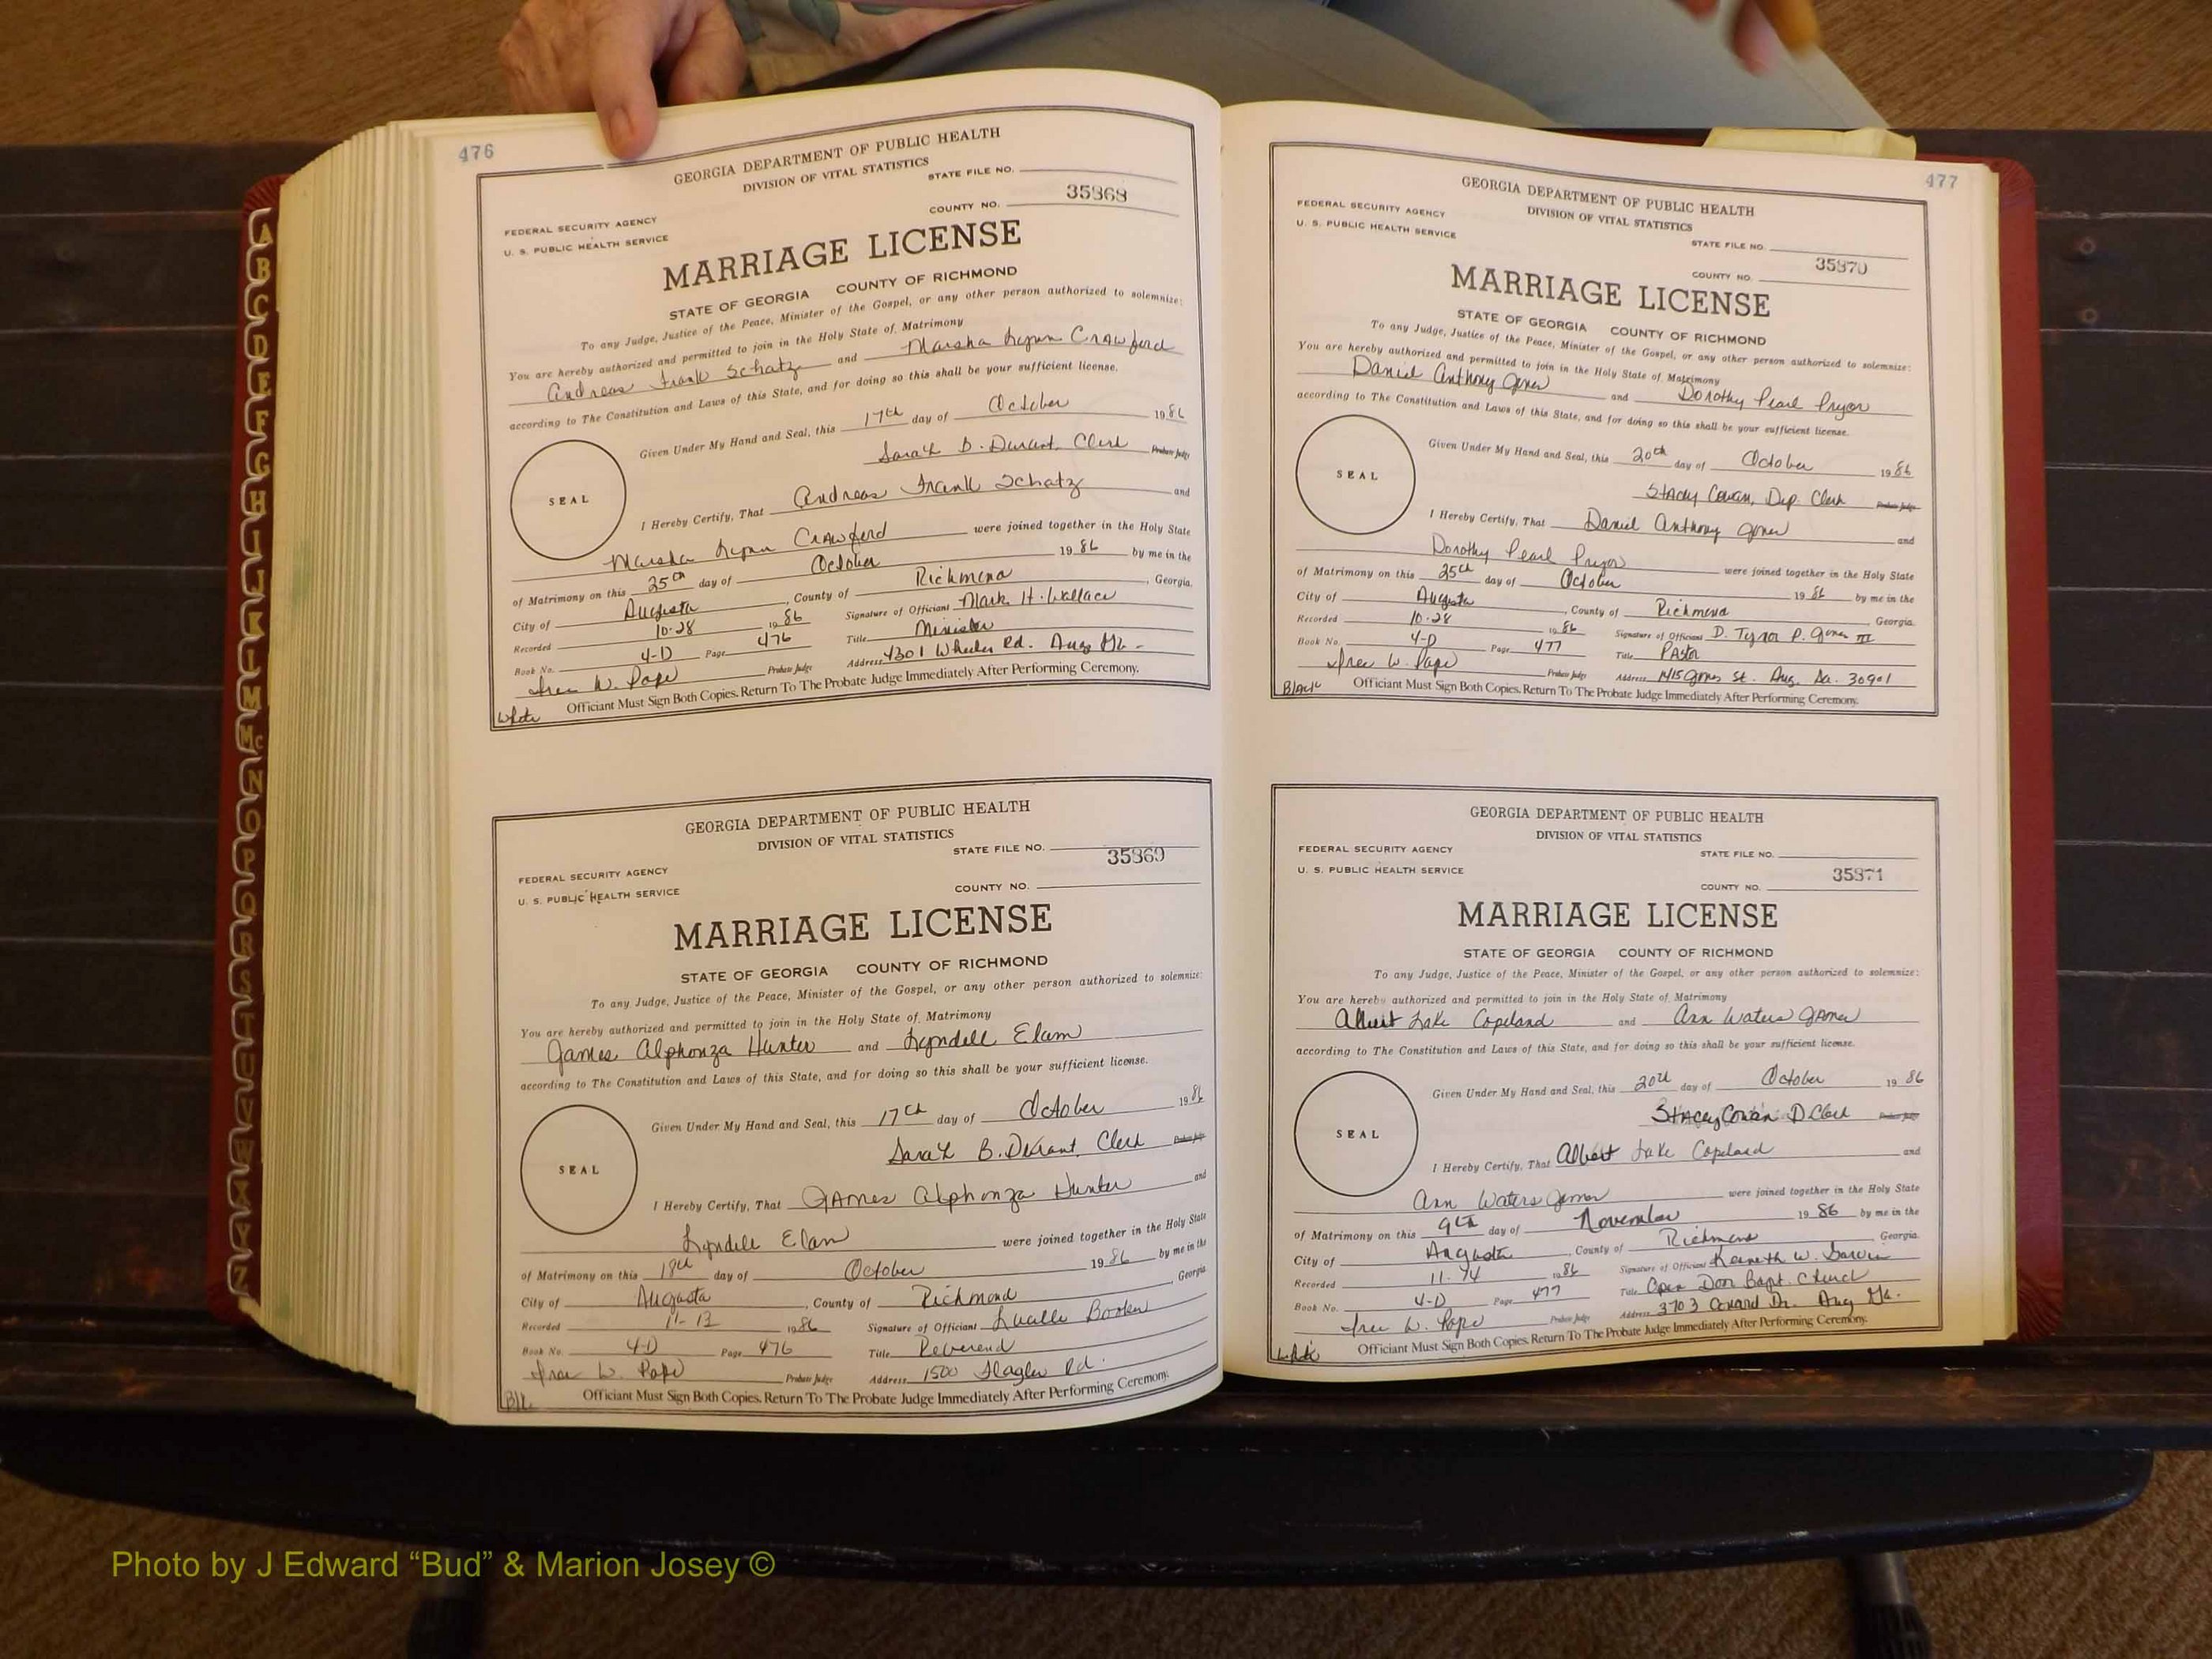 476
GEORGIA DEPARTMENT OF PUBLIC HEALTH
DIVISION OF VITAL STATISTICS
STATE FILE NO.
35868
FEDERAL SECURITY AGENCY
COUNTY NO.
U. S. PUBLIC HEALTH SERVICE
MARRIAGE LICENSE
STATE OF GEORGIA COUNTY OF RICHMOND
To any Judge, Justice of the Peace, Minister of the Gospel, or any other person authorized to solemnize:
You are hereby authorized and permitted to join in the Holy State of Matrimony
Andreas Frank Schatz and Marsha Lynn Crawford
according to The Constitution and Laws of this State, and for doing so this shall be your sufficient license.
Given Under My Hand and Seal, this 17th day of October 1986
Sarah B. Durant, Clerk Probate Judge
SEAL
I Hereby Certify, That Andreas Frank Schatz and
Marsha Lynn Crawford were joined together in the Holy State
of Matrimony on this 25th day of October 1986 by me in the
City of Augusta, County of Richmond, Georgia.
Recorded 10-28 1986 Signature of Officiant Mark H. Wallace
Book No. 4-D Page 476 Title Minister
Probate Judge Address 4301 Wheeler Rd. Aug Ga.
W. Pope
Officiant Must Sign Both Copies. Return To The Probate Judge Immediately After Performing Ceremony.
White
GEORGIA DEPARTMENT OF PUBLIC HEALTH
DIVISION OF VITAL STATISTICS
STATE FILE NO.
35869
FEDERAL SECURITY AGENCY
COUNTY NO.
U. S. PUBLIC HEALTH SERVICE
MARRIAGE LICENSE
STATE OF GEORGIA COUNTY OF RICHMOND
To any Judge, Justice of the Peace, Minister of the Gospel, or any other person authorized to solemnize:
You are hereby authorized and permitted to join in the Holy State of Matrimony
James Alphonza Hunter and Lyndell Elam
according to The Constitution and Laws of this State, and for doing so this shall be your sufficient license.
Given Under My Hand and Seal, this 17th day of October 1986
Sarah B. Durant, Clerk Probate Judge
SEAL
I Hereby Certify, That James Alphonza Hunter and
Lyndell Elam were joined together in the Holy State
of Matrimony on this 18th day of October 1986 by me in the
City of Augusta, County of Richmond, Georgia
Recorded 11-13 1986 Signature of Officiant Luelle Booker
Book No. 4-D Page 476 Title Reverend
W. Pope Probate Judge Address 1500 Flagler Rd.
Officiant Must Sign Both Copies. Return To The Probate Judge Immediately After Performing Ceremony.
Blk.
477
GEORGIA DEPARTMENT OF PUBLIC HEALTH
DIVISION OF VITAL STATISTICS
FEDERAL SECURITY AGENCY
STATE FILE NO.
U. S. PUBLIC HEALTH SERVICE
35870
COUNTY NO.
MARRIAGE LICENSE
STATE OF GEORGIA COUNTY OF RICHMOND
To any Judge, Justice of the Peace, Minister of the Gospel, or any other person authorized to solemnize:
You are hereby authorized and permitted to join in the Holy State of Matrimony
Daniel Anthony Jones and Dorothy Pearl Pryor
according to The Constitution and Laws of this State, and for doing so this shall be your sufficient license.
Given Under My Hand and Seal, this 20th day of October 1986
Stacey Cowan, Dep. Clerk Probate Judge
SEAL
I Hereby Certify, That Daniel Anthony Jones and
Dorothy Pearl Pryor were joined together in the Holy State
of Matrimony on this 25th day of October 1986 by me in the
City of Augusta, County of Richmond Georgia.
Recorded 10-28 1986 Signature of Officiant D. P. Jones III
Book No. 4-D Page 477 Title Pastor
W. Pope Probate Judge Address 1415 Jones St. Aug. Ga. 30901
Black
Officiant Must Sign Both Copies. Return To The Probate Judge Immediately After Performing Ceremony.
GEORGIA DEPARTMENT OF PUBLIC HEALTH
DIVISION OF VITAL STATISTICS
FEDERAL SECURITY AGENCY
STATE FILE NO.
U. S. PUBLIC HEALTH SERVICE
35871
COUNTY NO.
MARRIAGE LICENSE
STATE OF GEORGIA COUNTY OF RICHMOND
To any Judge, Justice of the Peace, Minister of the Gospel, or any other person authorized to solemnize:
You are hereby authorized and permitted to join in the Holy State of Matrimony
Albert Lake Copeland and Ann Waters
according to The Constitution and Laws of this State, and for doing so this shall be your sufficient license.
Given Under My Hand and Seal, this 20th day of October 1986
Stacey Cowan D. Clerk Probate Judge
SEAL
I Hereby Certify, That Albert Lake Copeland and
Ann Waters were joined together in the Holy State
of Matrimony on this 9th day of November 1986 by me in the
City of Augusta, County of Richmond Georgia.
Recorded 11-14 1986 Signature of Officiant Kenneth W.
Book No. 4-D Page 477 Title Open Door Bapt. Church
W. Pope Probate Judge Address 3703 Dr. Aug Ga.
White
Officiant Must Sign Both Copies. Return To The Probate Judge Immediately After Performing Ceremony.
A
B
C
D
E
F
G
H
I
J
K
L
M
Mc
N
O
P
Q
R
S
T
U
V
W
X
Y
Z
Photo by J Edward “Bud” & Marion Josey ©